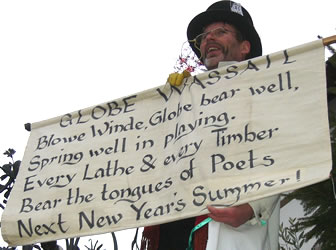 GLOBE WASSAIL
Blowe Winde, Globe bear well,
Spring well in playing.
Every Lathe & every Timber
Bear the tongues of Poets
Next New Year's Summer!